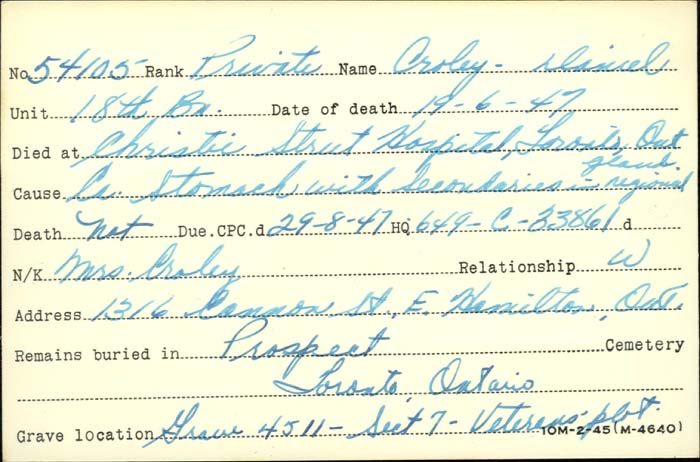 No. 54105 Rank Private Name Croley - Daniel
Unit 18th Bn. Date of death 19-6-47
Died at Christie Street Hospital, Toronto, Ont
Cause Ca. Stomach with Secondaries in regional gland.
Death Not Due. CPC.d. 29-8-47 HQ 649-C-33861 d
N/K Mrs. Croley Relationship W
Address 1316 Cannon St., E. Hamilton, Ont.
Remains buried in Prospect Cemetery
Toronto, Ontario
Grave location Grave 4511 - Sect 7 - Veterans plot.
10M-2-45 (M-4640)